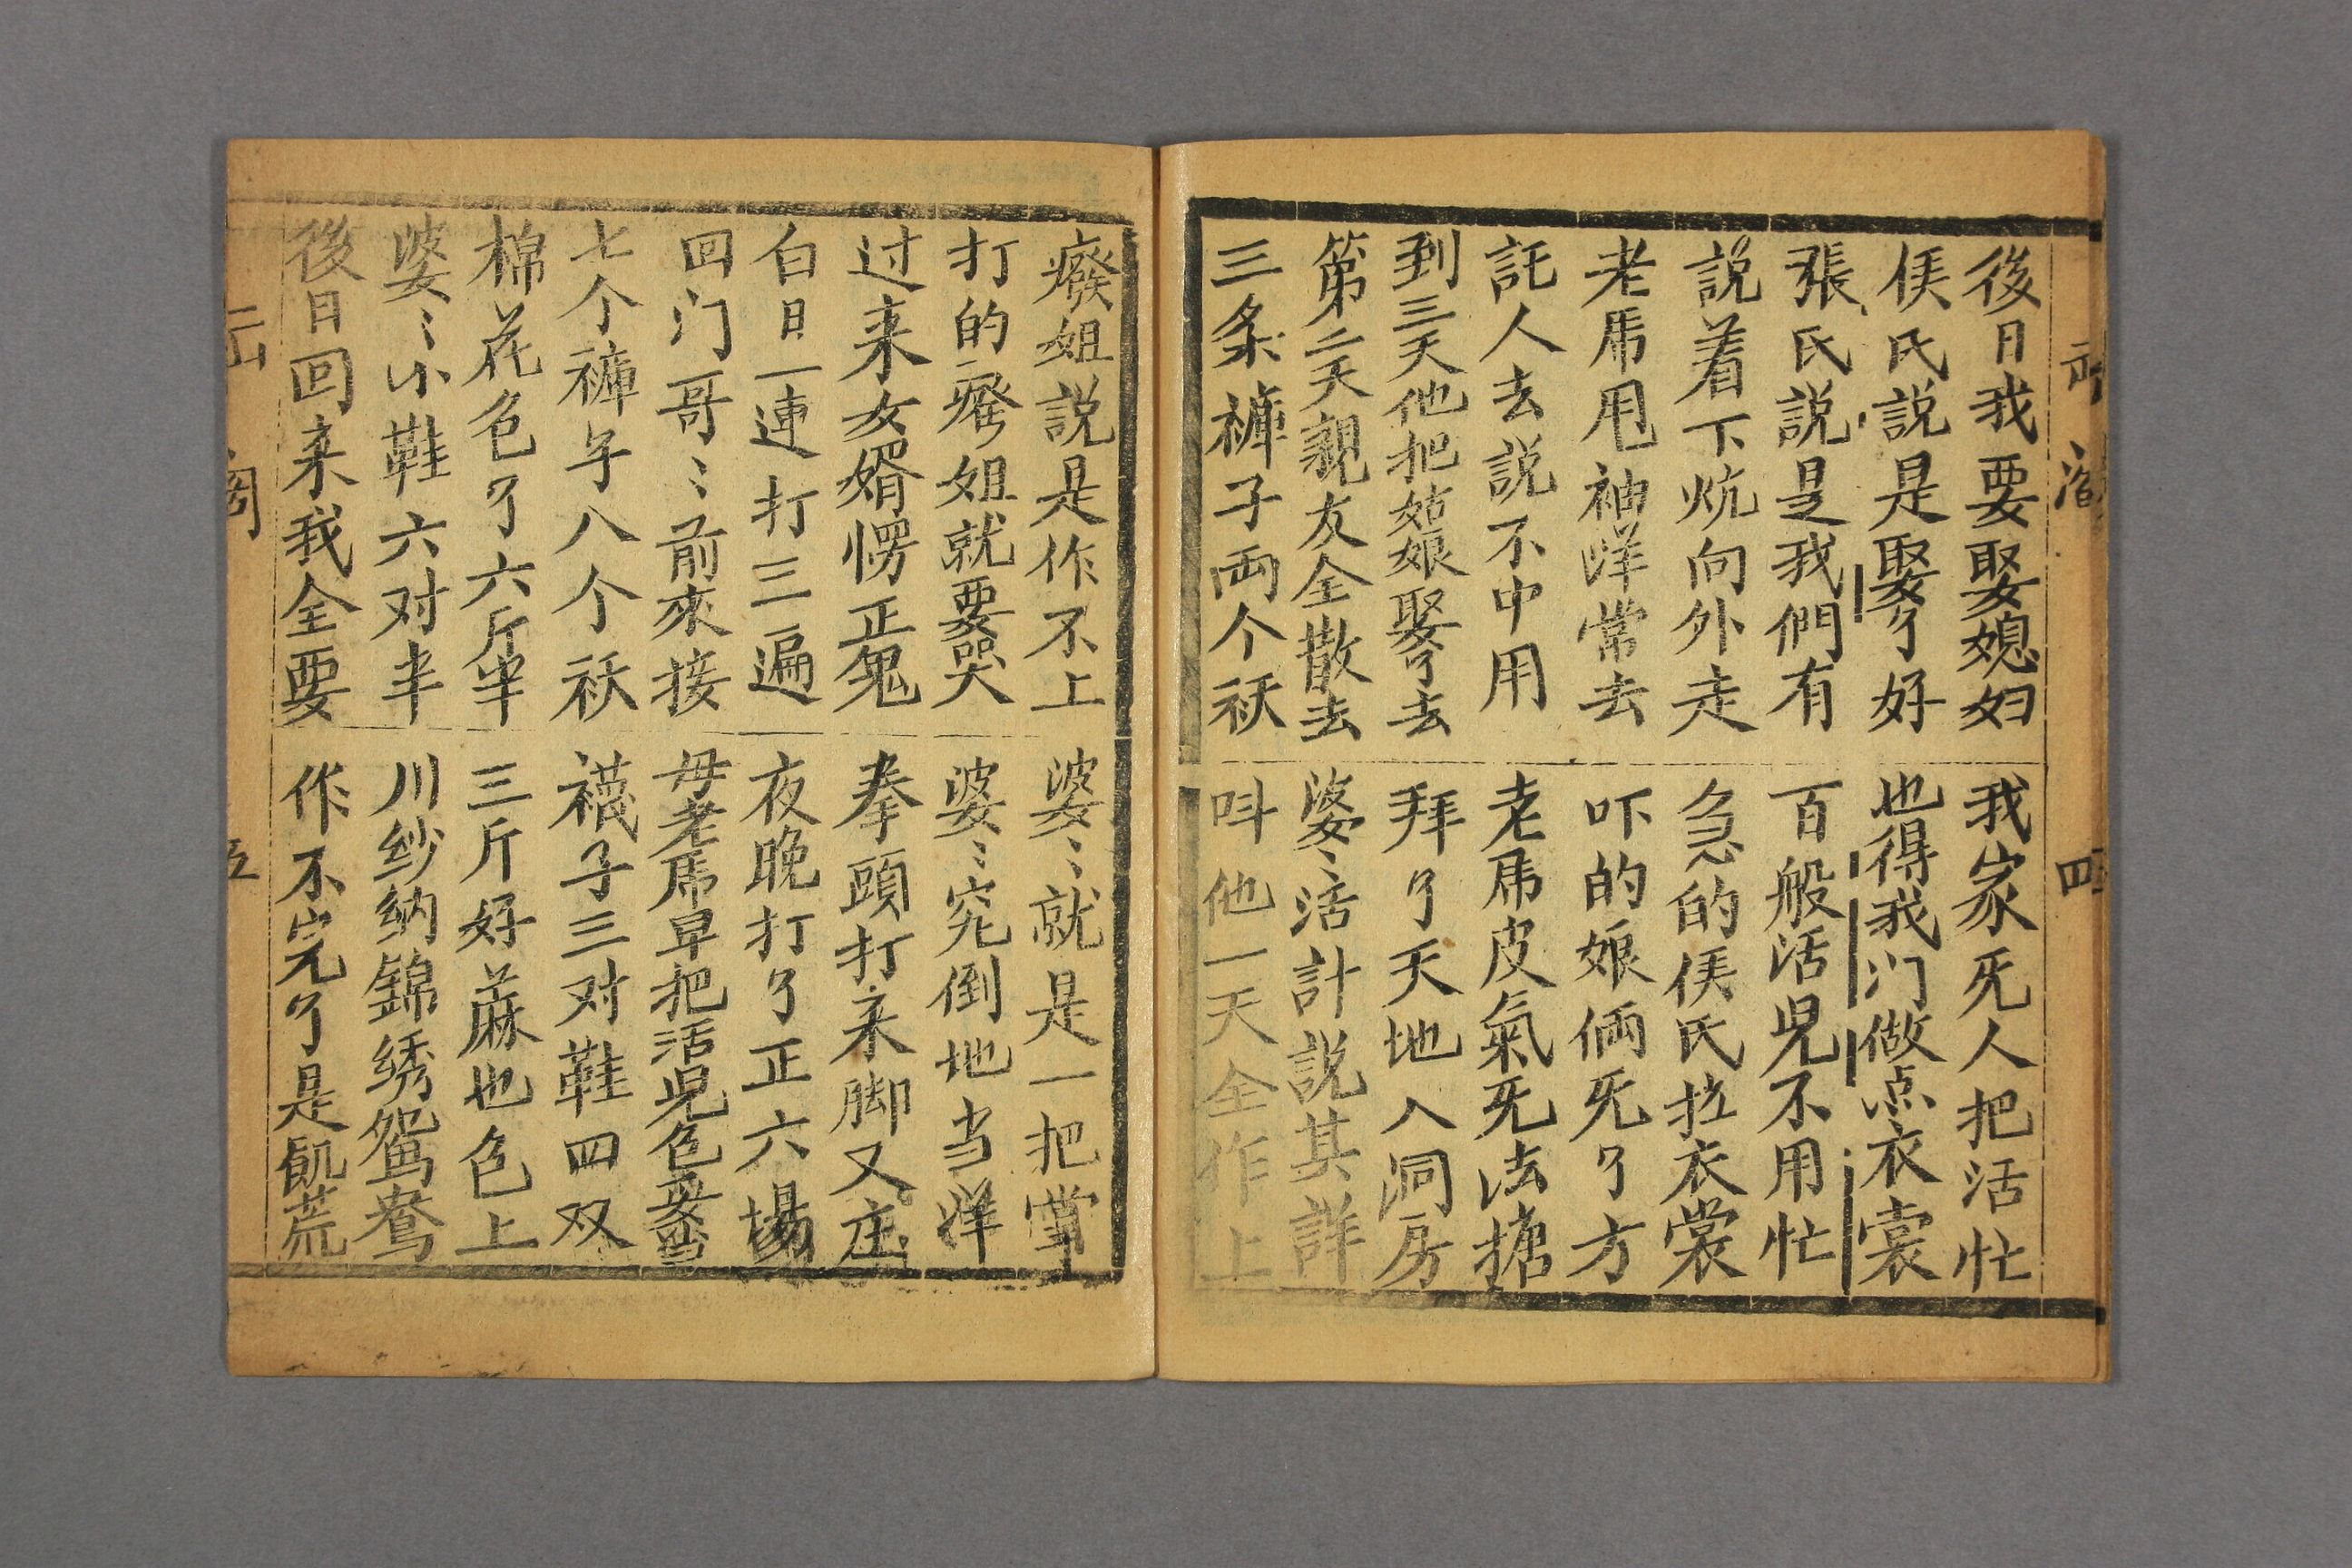 後日我要娶媳妇　我家死人把活忙
侯氏説是娶了好　也得我门做点衣裳
張氏説是我們有　百般活児不用忙
説着下炕向外走　急的侯氏拉衣裳
老乕甩袖洋常去　吓的娘倆死了方
託人去説不中用　老乕皮氣死法搪
到三天他把姑娘娶了去　拜了天地入洞房
第二天親友全散去　婆〻活計説其詳
三条褲子両个袄　呌他一天全作上
癈姐説是作不上　婆〻就是一把掌
打的癈姐就要哭　婆〻究倒地当洋
过来女婿愣正鬼　拳頭打来脚又庄
白日一連打三遍　夜晚打了正六場
回门哥〻前來接　母老乕早把活児包妥当
七个褲子八个袄　襪子三对鞋四双
棉花包了六斤半　三斤好蔴也包上
婆〻小鞋六对半　川纱纳錦绣鸳鴦
後日回来我全要　作不完了是飢荒
四
五